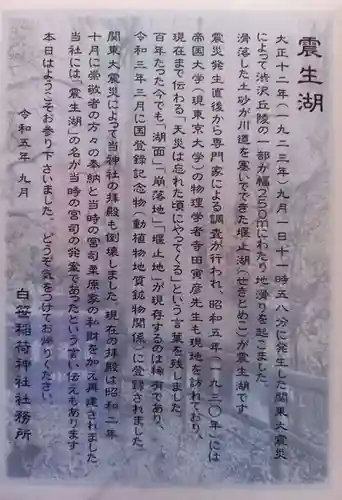 震生湖
大正十二年（一九二三年）九月一日十一時五八分に発生した関東大震災
によって渋沢丘陵の一部が幅250mにわたり地滑りを起こしました
滑落した土砂が川道を塞いでできた堰止湖（せきとめこ）が震生湖です
震災発生直後から専門家による調査が行われ、昭和五年（一九三〇年）には
帝国大学（現東京大学）の物理学者寺田寅彦先生も現地を訪れており、
現在まで伝わる「天災は忘れた頃にやってくる」という言葉を残しました
百年たった今でも「湖面」「崩落地」「堰止地」が現存するのは稀有であり、
令和三年三月に国登録記念物（動植物地質鉱物関係）に登録されました
関東大震災によって当神社の拝殿も倒壊しました。現在の拝殿は昭和二年
十月に崇敬者の方々の奉納と当時の宮司栗原家の私財を加え再建されました
当社には「震生湖」の名が当時の宮司の発案であったという言い伝えもあります
本日はようこそお参り下さいました。どうぞ気をつけてお帰りください。
令和五年 九月
白笹稲荷神社社務所